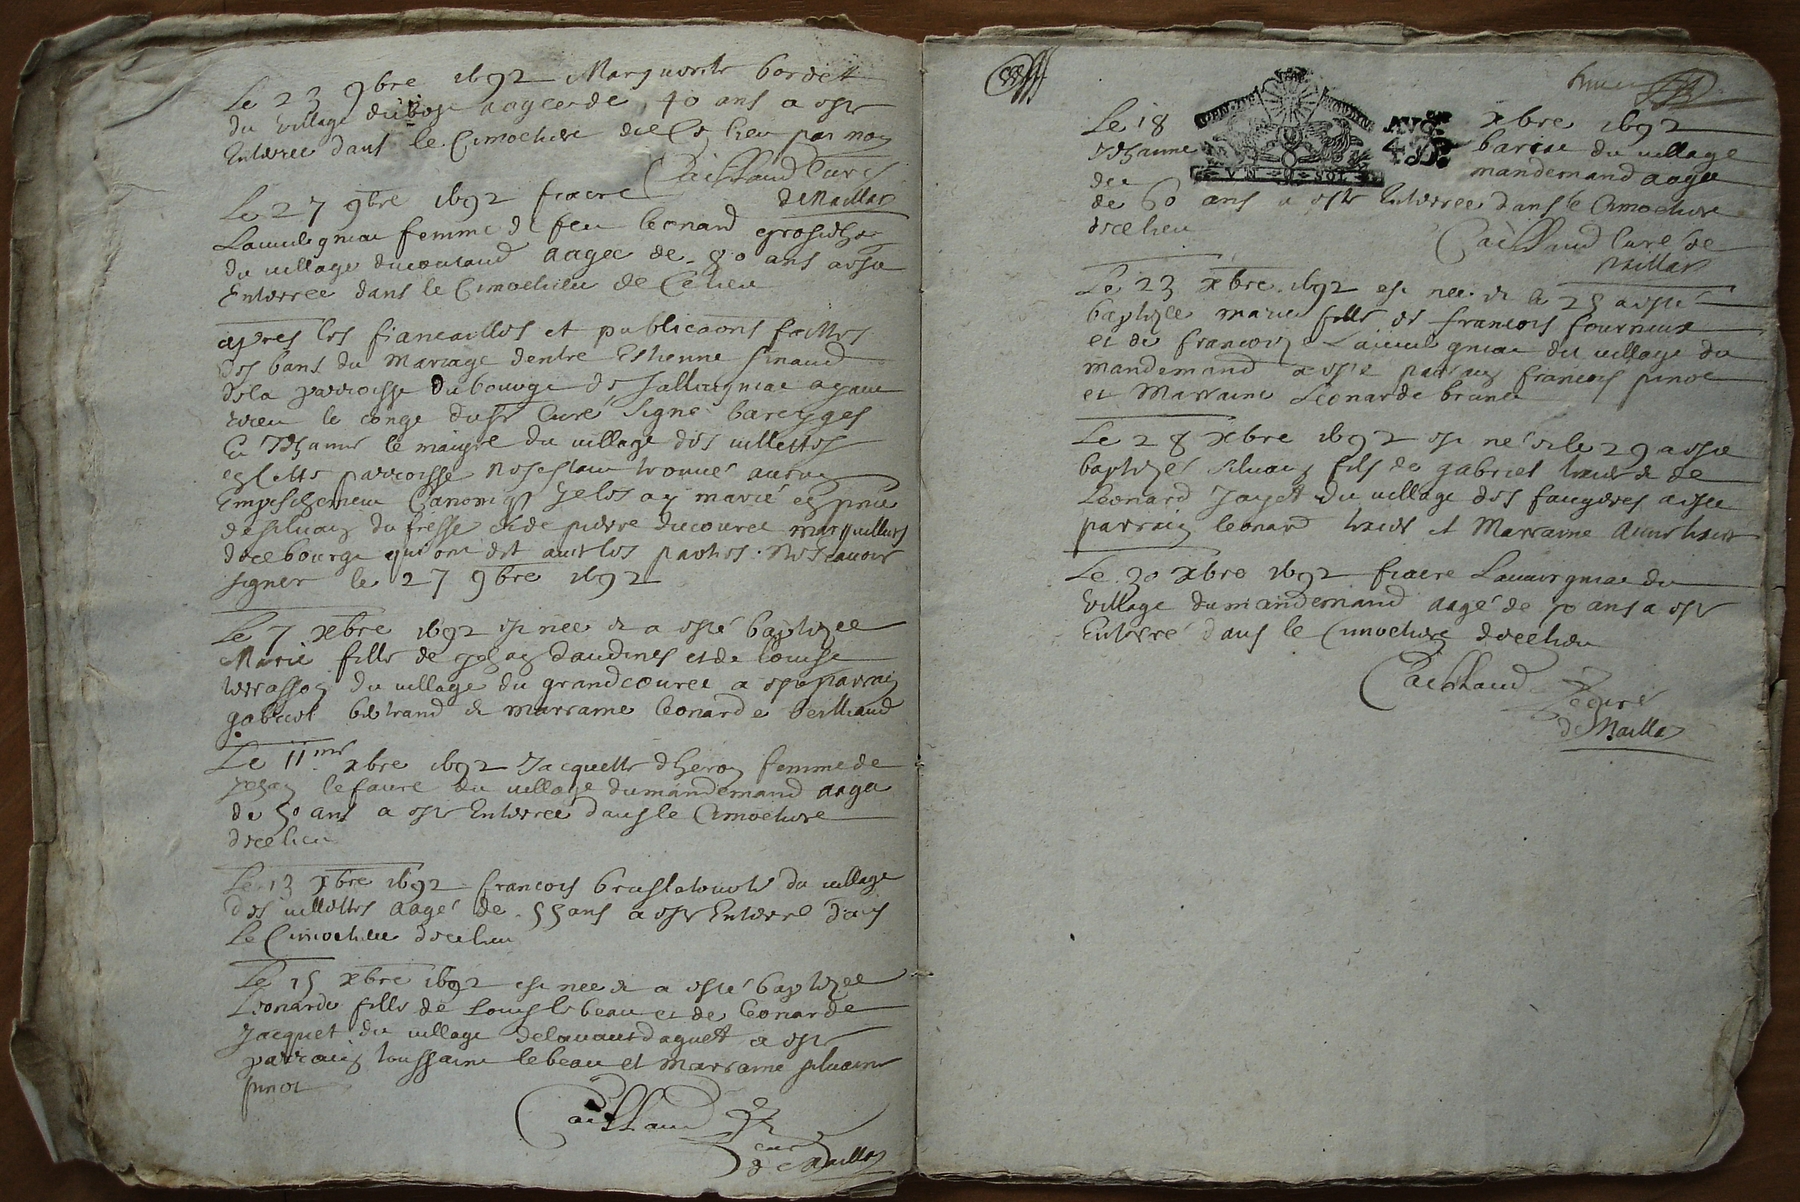 Le 23 9bre 1692 Marguerite bordet
du village du aagee de 40 ans a este
Enterree dans le Cimetiere de ce lieu par moy
Caillaud Curé
de Naillat
Le 27 9bre 1692 fiacre
femme de feu leonard
du village aagee de 80 ans a este
Enterree dans le Cimetiere de Ce lieu
apres les fiancailles et publicaons faittes
des bans du Mariage dentre Estienne pinaud
de la parroisse du bourge de Sallaignac ayant
veu le conge dusr Curé Signe bareyges
Et Jehanne le maigre du village des villettes
en cette parroisse Nestant trouvé aucun
Empeschement Canoniq Je les ay marié en pnce
de silvain du fresse et de pierre ducouret marguilliers
dece bourge qui ont dit avec les parties Ne scavoir
signer le 27 9bre 1692
Le 7 xbre 1692 est nee et a esté baptizee
Marie fille de Jehan daudines et de louise
du village du grandcouret a este parrain
gabriel bertrand et marraine leonarde
Le 11me xbre 1692 Jacquette dheron femme de
Jehan lefaure du village dumandemand aagee
de 50 ans a este Enterree dans le Cimetiere
dece lieu
Le 13 xbre 1692 francois du village
des villettes aagé de 55 ans a este Enterré dans
Le Cimetiere dece lieu
Le 15 xbre 1692 est nee et a esté baptizee
Leonarde fille de Louis lebeau et de leonarde
Jacquet du village delavautdaguet a este
parrain toussaint lebeau et marraine silvaine
pinot
Caillaud
curé
de Naillat
Le 18 xbre 1692
Jehanne bariat du village
du mandemand aagee
de 60 ans a este Enterree dans le Cimetiere
dece lieu
VN SOL
AVG.on
4 D.
Caillaud Curé de
Naillat
Le 23 xbre 1692 est nee et le 25 a esté
baptizee marie fille de francois fourneux
et de francoise Lavergniat du village du
mandemand a este parrain francois pinot
et Marraine Leonarde brunet
Le 28 xbre 1692 est né et le 29 a este
baptizé silvain fils de gabriel et de
Leonard Jayet du village des faugieres a este
parrain leonard et Marraine
Le 30 xbre 1692 fiacre Lavergniat du
village dumandemand aagé de 70 ans a este
Enterré dans le Cimetiere dece lieu
Caillaud
curé
de Naillat